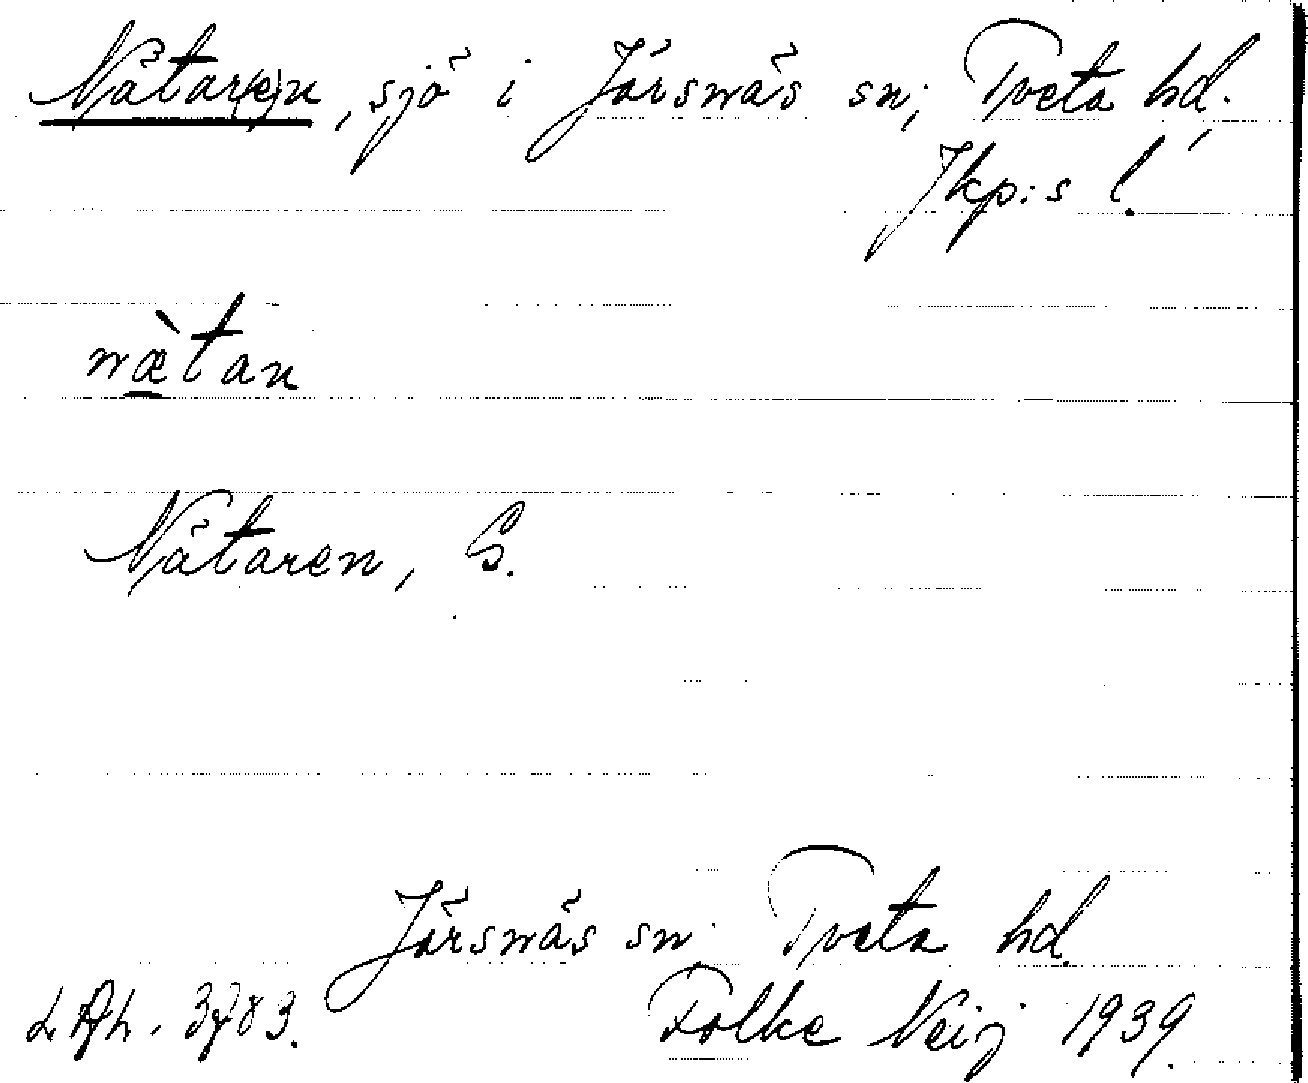 Nätar(e)n, sjö i Järsnäs sn; Tveta hd.
Jkp:s l.
næ̀tan
Nätaren, S.
Järsnäs sn. Tveta hd.
Folke Neij 1939.